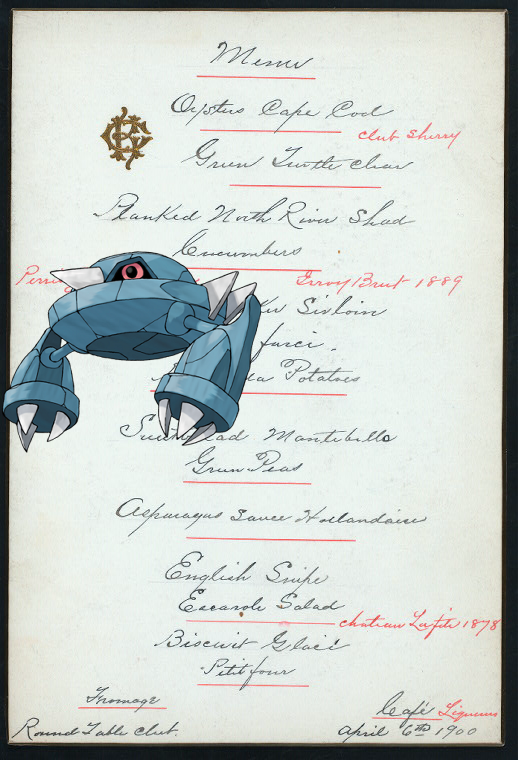 Menu
Oysters Cape Cod
Club Sherry
Green Turtle Clear
Planked North River Shad
Cucumbers
Irroy Brut 1889
Sirloin
farci.
Potatoes
Montebello
Green Peas
Asparagus Sauce Hollandaise
English Snipe
Escarole Salad
Chateau Lafite 1878
Biscuit Glacé
Petit four
Fromage
Café Liqueurs
Round Table Club.
April 6th 1900